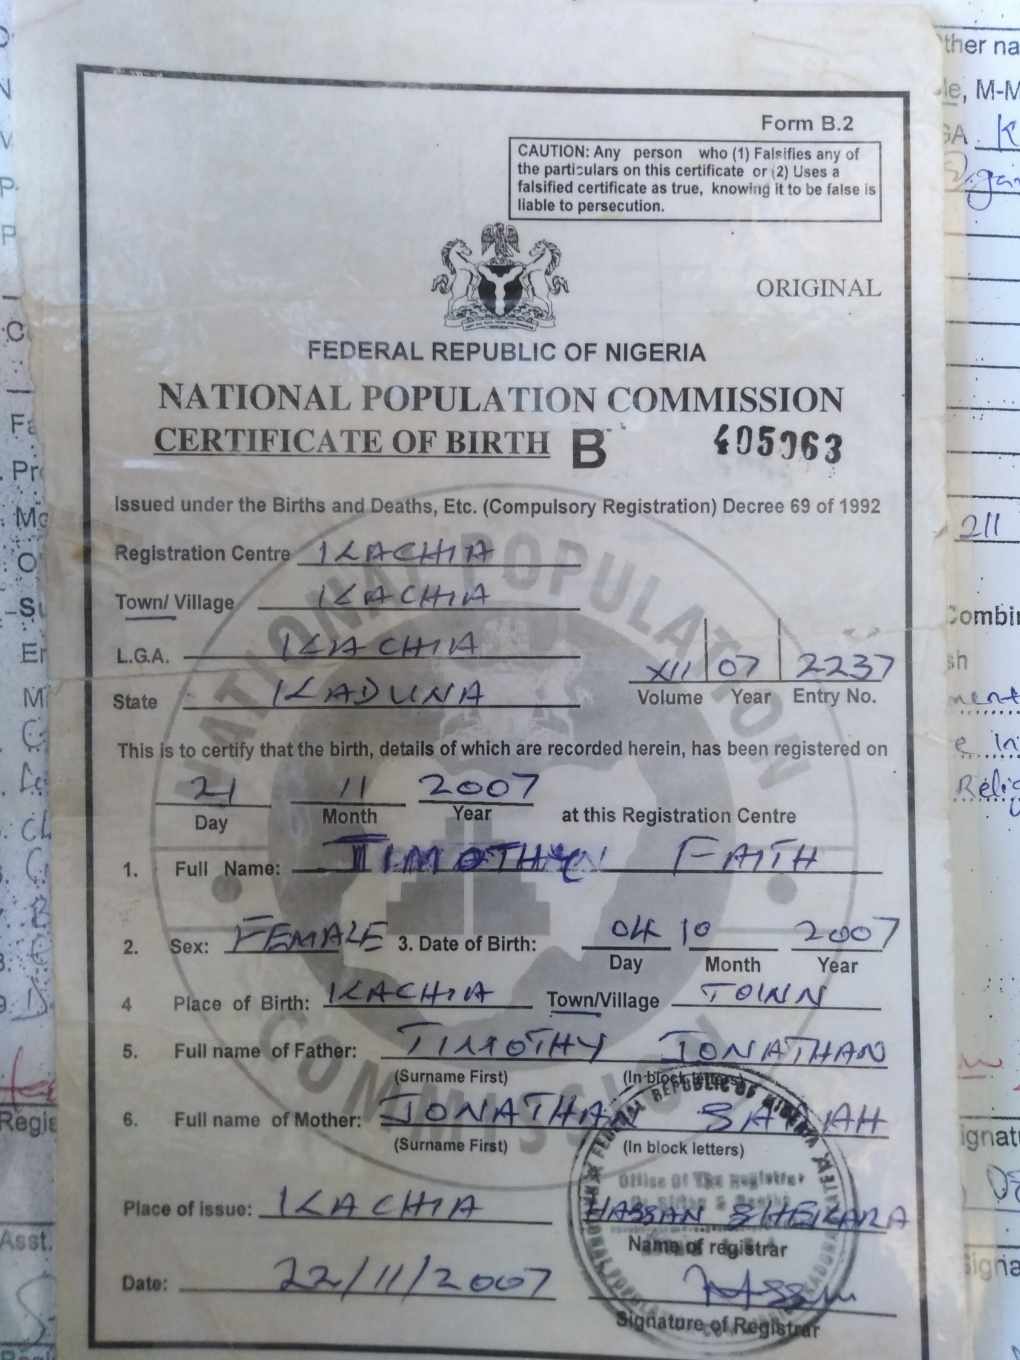 Form B.2
CAUTION: Any person who (1) Falsifies any of
the particulars on this certificate or (2) Uses a
falsified certificate as true, knowing it to be false is
liable to persecution.
ORIGINAL
FEDERAL REPUBLIC OF NIGERIA
NATIONAL POPULATION COMMISSION
CERTIFICATE OF BIRTH B 405963
Issued under the Births and Deaths, Etc. (Compulsory Registration) Decree 69 of 1992
Registration Centre KACHIA
Town/ Village KACHIA
L.G.A. KACHIA
XII 07 2237
State KADUNA
Volume Year Entry No.
This is to certify that the birth, details of which are recorded herein, has been registered on
21 11 2007
Day Month Year at this Registration Centre
1. Full Name: TIMOTHY FAITH
2. Sex: FEMALE 3. Date of Birth: 04 10 2007
Day Month Year
4 Place of Birth: KACHIA Town/Village TOWN
5. Full name of Father: TIMOTHY JONATHAN
(Surname First) (In block letters)
6. Full name of Mother: JONATHAN SARAH
(Surname First) (In block letters)
Place of issue: KACHIA HASSAN SHEKARA
Name of registrar
Date: 22/11/2007
Signature of Registrar
NATIONAL POPULATION COMMISSION